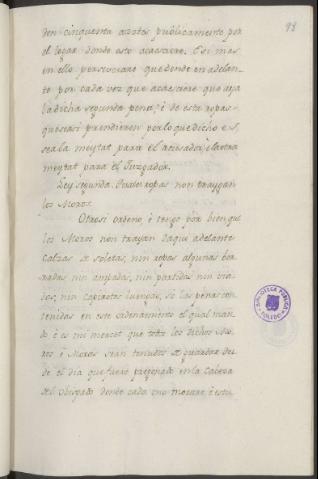 98
den cinquenta azotes publicamente por
el logar donde esto acaesciere. E si mas
en ello perseverare que dende en adelan-
te por cada vez que acaesciere que aya
la dicha segunda pena, è de esta ropas
que seasi prendieren por lo que dicho es,
sea la meytat para el acusador, è la otra
meytat para el Juzgador.
Ley segunda. Quales ropas non traygan
los Moros.
Otrosi ordeno è tengo por bien que
los Moros non trayan daqui adelante
calzas de soletas, nin ropas algunas
nin partidas nin
nin capirotes luengos, so las penas con-
tenidas en este ordenamiento el qual man-
do è es mi mercet que todos los dichos
è Moros sean tenudos de guardar des-
de el dia que fuere pregonado en la Cabeza
del Obispado donde cada uno morare, è esta
BIBLIOTECA PÚBLICA
TOLEDO